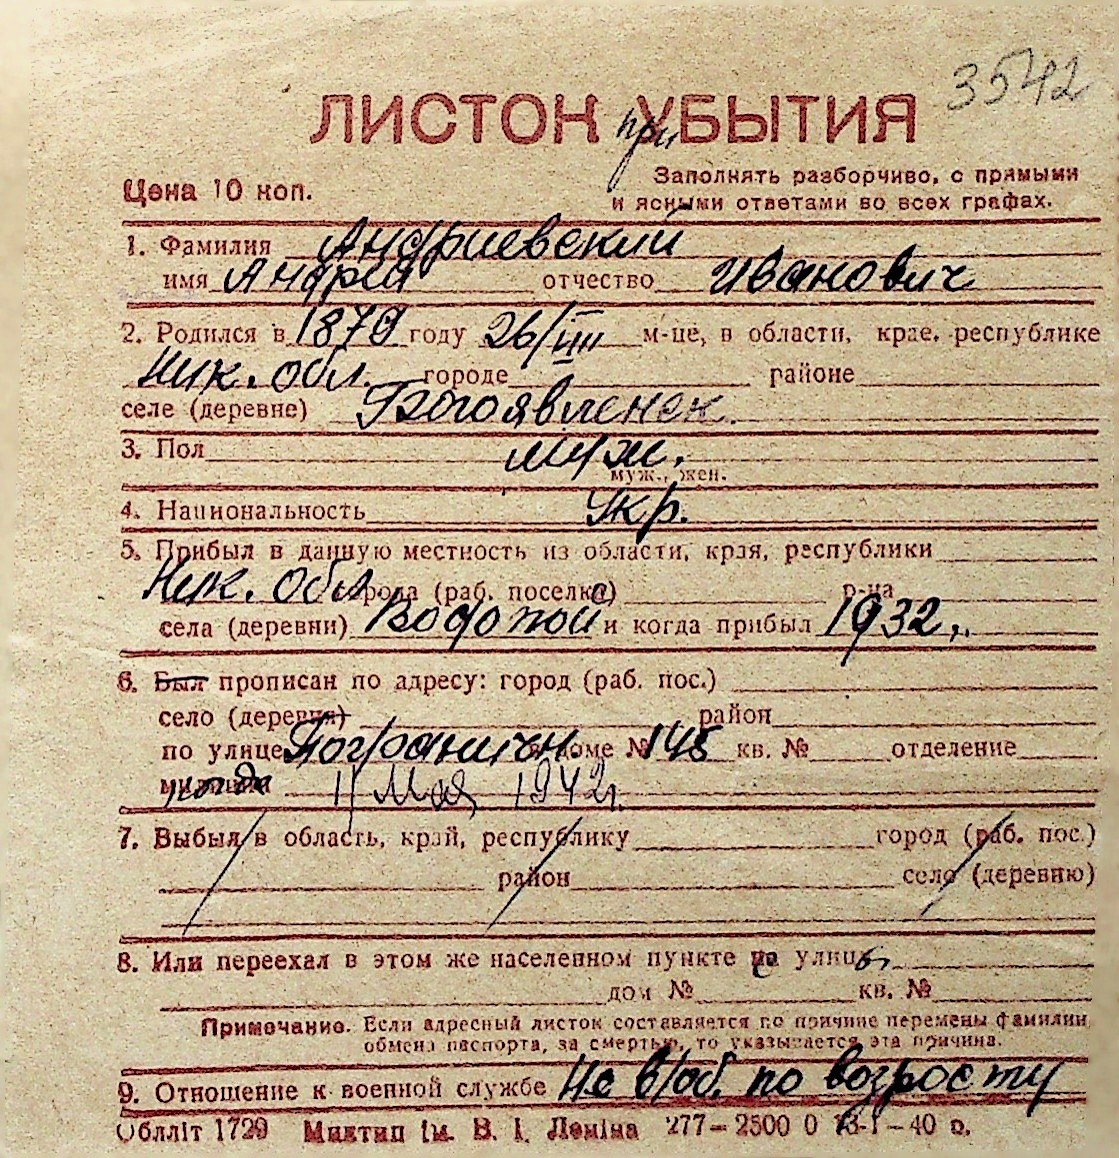 3542
ЛИСТОК при УБЫТИЯ
Цена 10 коп.
Заполнять разборчиво, с прямыми
и ясными ответами во всех графах.
1. Фамилия Андриевский
имя Андрей отчество Иванович
2. Родился в 1879 году 26/VIII м-це, в области, крае, республике
Ник. обл. городе районе
селе (деревне) Богоявленск.
3. Пол муж.
муж., жен.
4. Национальность Укр.
5. Прибыл в данную местность из области, края, республики
Ник. Обл. города (раб. поселка) р-на
села (деревни) Водопой и когда прибыл 1932
6. Был прописан по адресу: город (раб. пос.)
село (деревня) район
по улице Пограничн. в доме № 145 кв. № отделение
милиции 11 Мая 1942 г.
7. Выбыл в область, край, республику город (раб. пос.)
район село (деревню)
8. Или переехал в этом же населенном пункте улицы
дом № кв. №
Примечание. Если адресный листок составляется по причине перемены фамилии
обмена паспорта, за смертью, то указывается эта причина.
9. Отношение к военной службе не в/об. по возросту
Обллiт 1729 Миктип iм. В. I. Ленiна 277–2500 0 13-I–40 р.